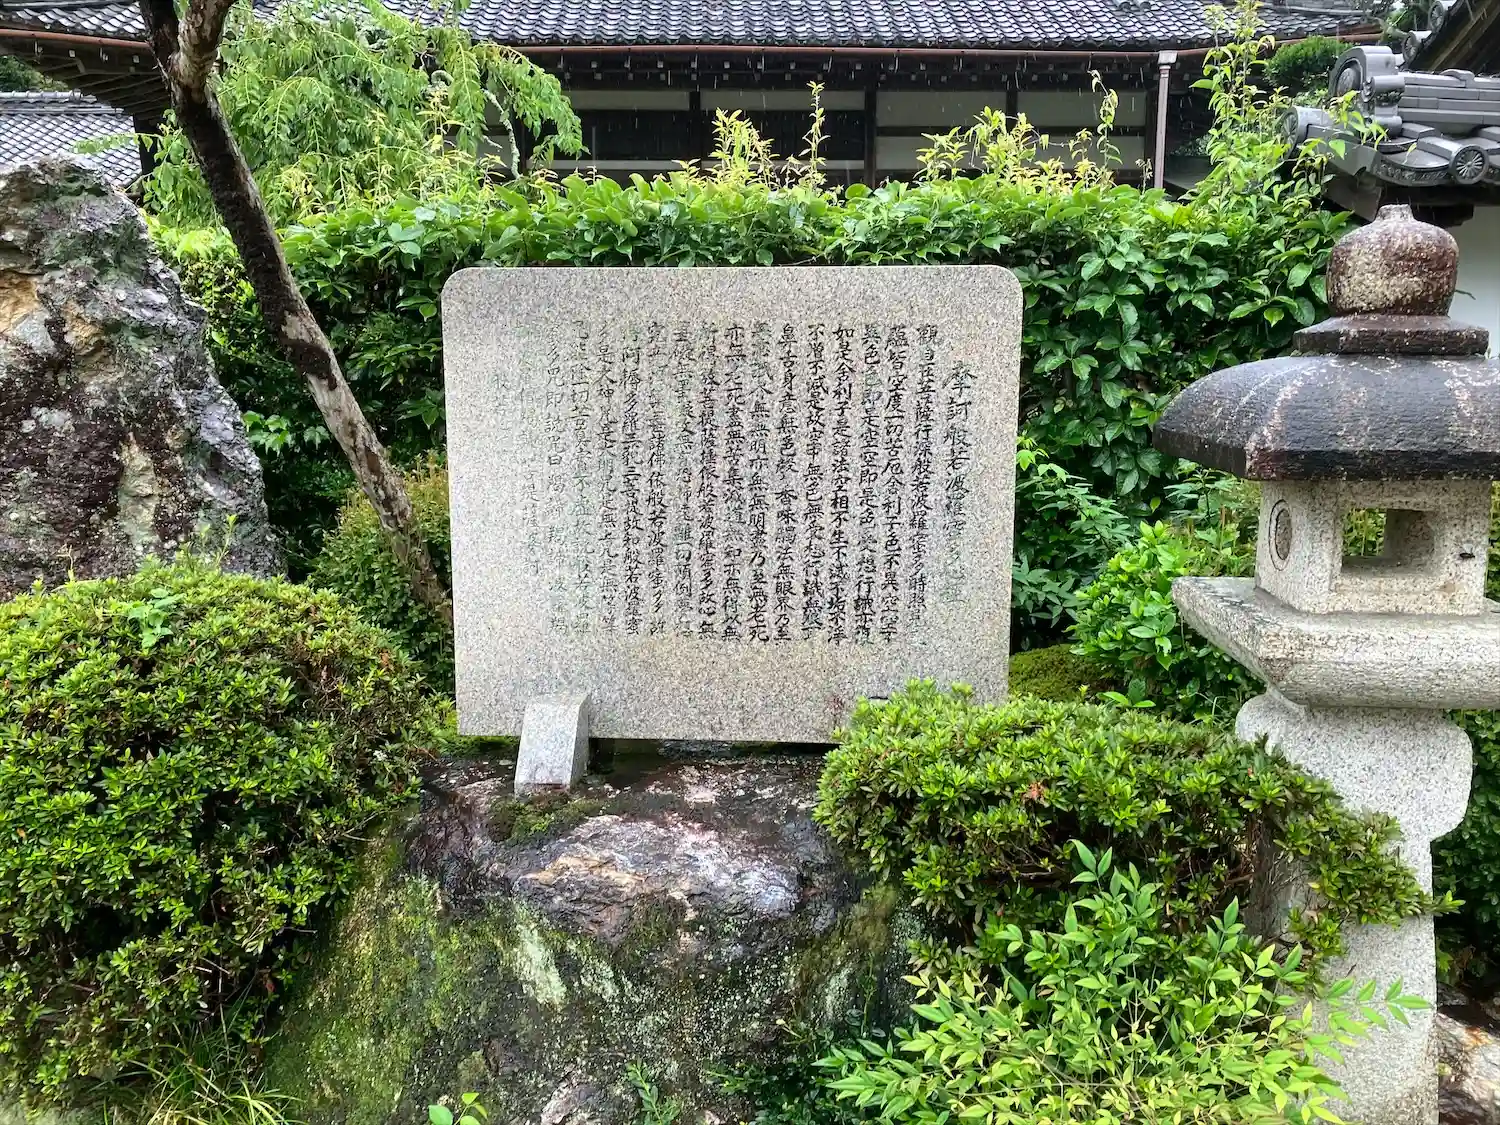 摩訶般若波羅蜜多心経
觀自在菩薩行深般若波羅蜜多時照見五
蘊皆空度一切苦厄舎利子色不異空空不
異色色即是空空即是色受想行識亦復
如是舎利子是諸法空相不生不滅不垢不淨
不増不減是故空中無色無受想行識無眼耳
鼻舌身意無色聲香味觸法無眼界乃至
無意識界無無明亦無無明盡乃至無老死
亦無老死盡無苦集滅道無知亦無得以無
所得故菩提薩埵依般若波羅蜜多故心無
罣礙無罣礙故無有恐怖遠離一切顛倒夢想
究竟涅槃三世諸佛依般若波羅蜜多故
得阿耨多羅三藐三菩提故知般若波羅蜜
多是大神咒是大明咒是無上咒是無等等
咒能除一切苦真實不虚故説般若波羅
蜜多咒即説咒曰羯諦羯諦波羅羯
諦波羅僧羯諦菩提薩婆訶
般若